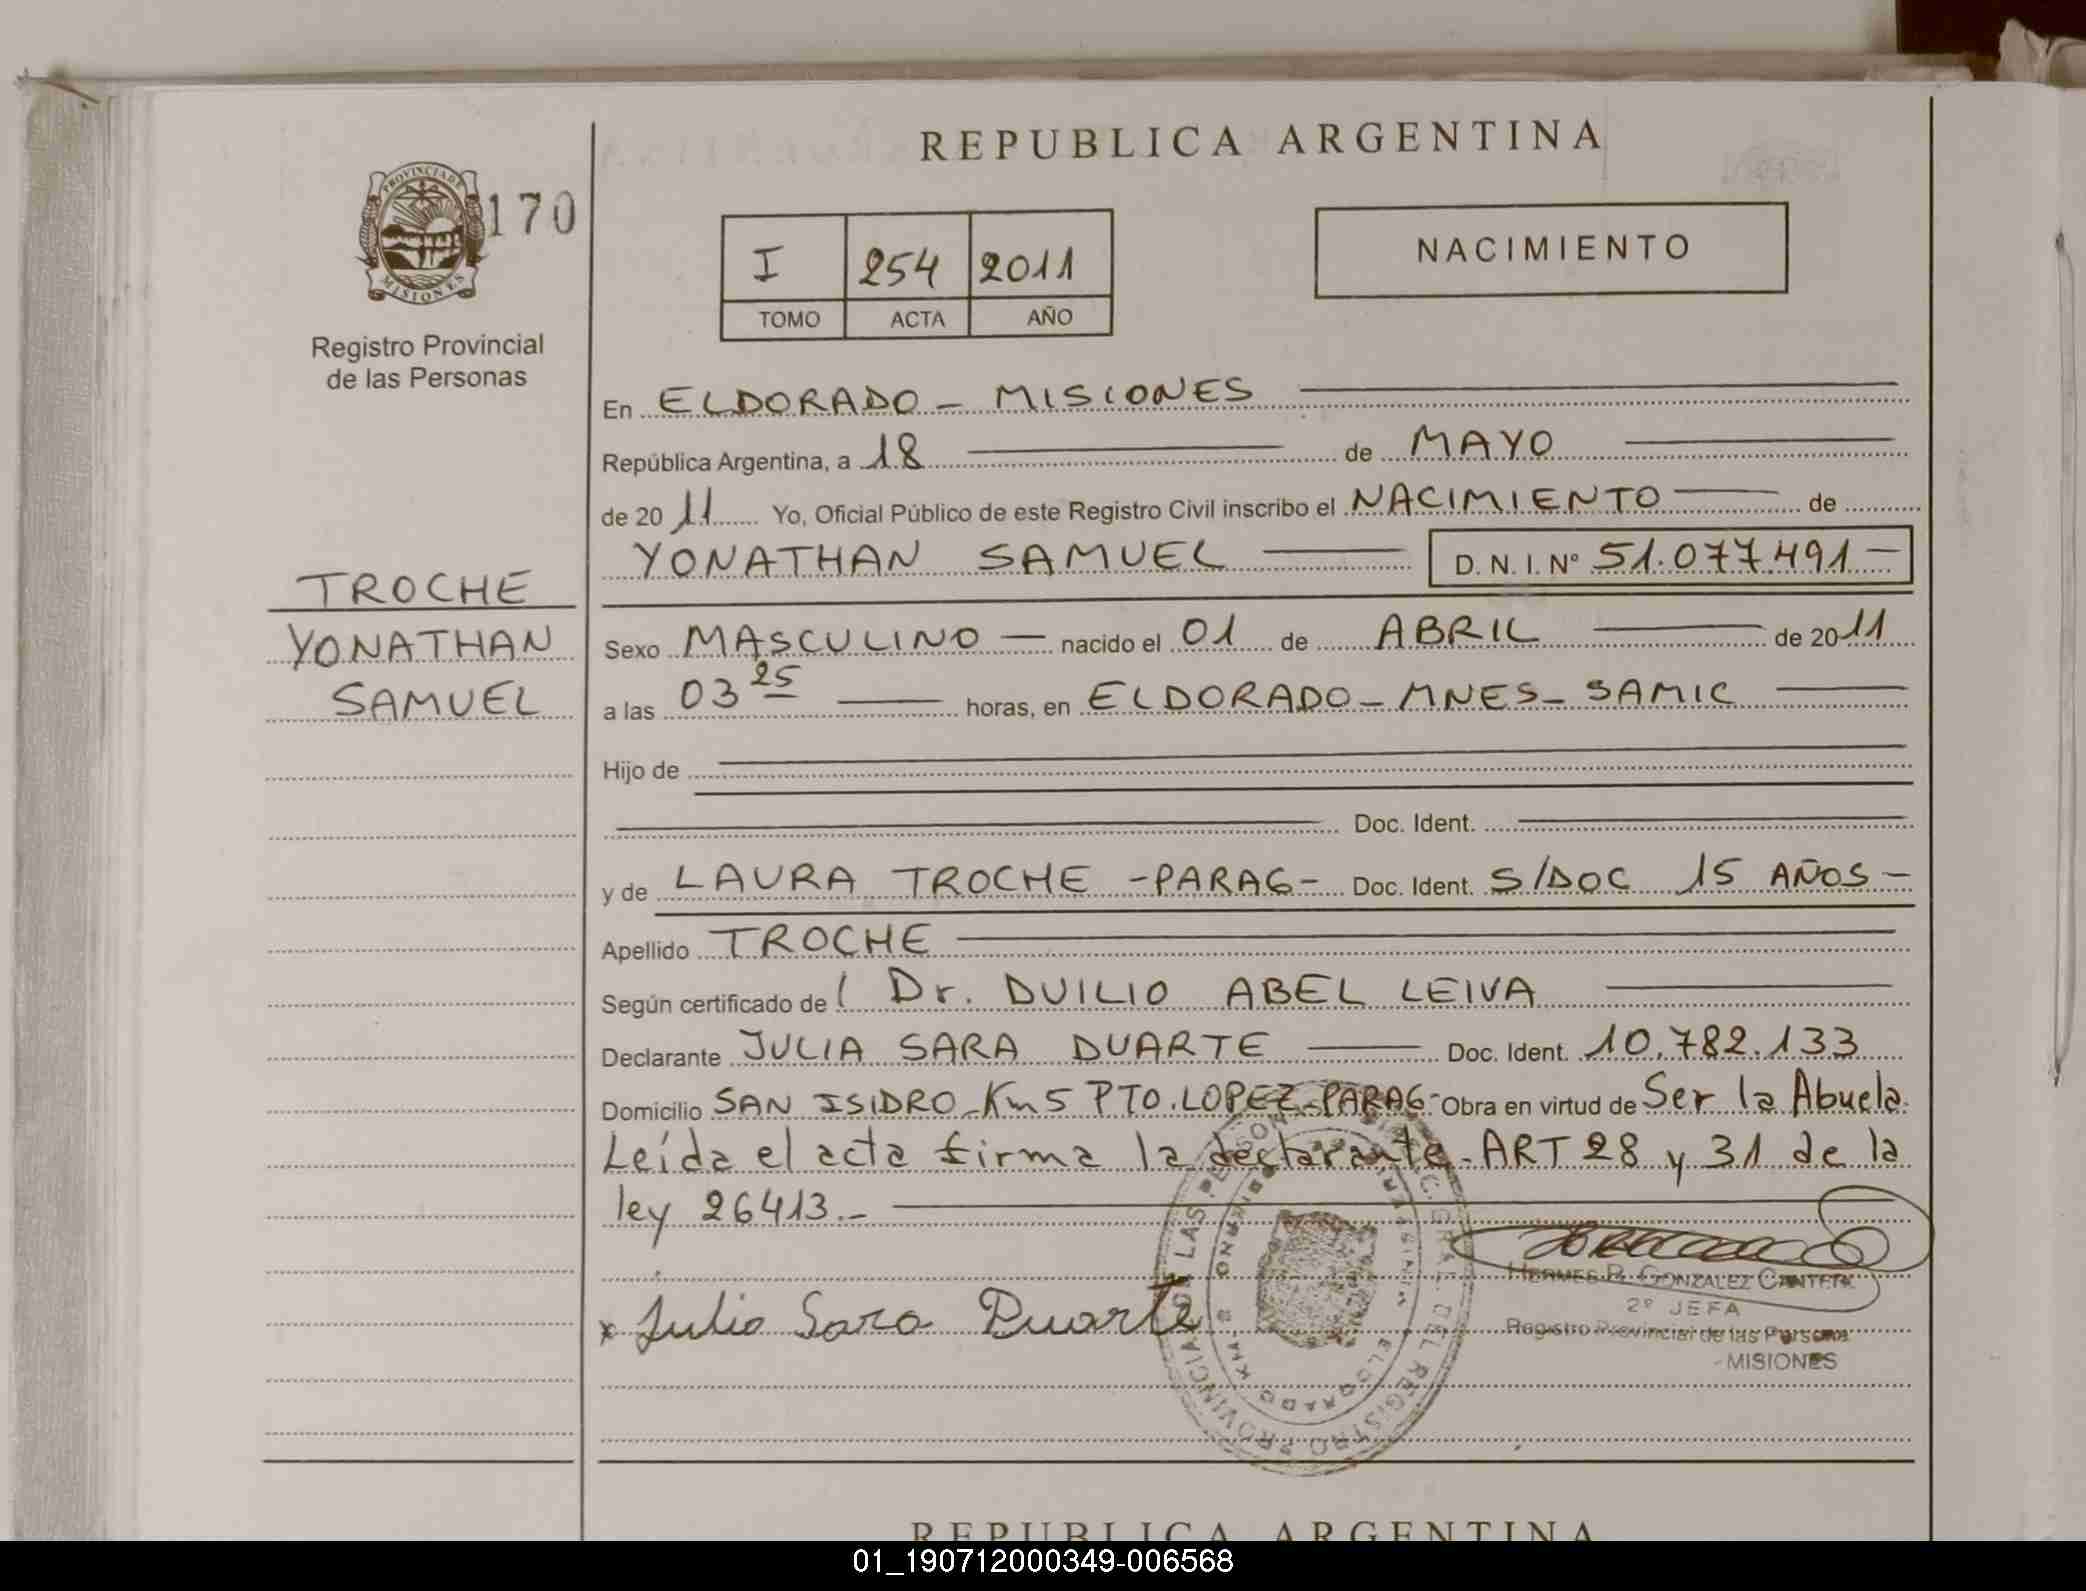 REPUBLICA ARGENTINA
PROVINCIA DE
MISIONES
170
Registro Provincial
de las Personas
I 254 2011
TOMO ACTA AÑO
NACIMIENTO
En ELDORADO - MISIONES
República Argentina, a 18 de MAYO
de 2011 Yo, Oficial Público de este Registro Civil inscribo el NACIMIENTO de
YONATHAN SAMUEL D. N. I. Nº 51.077.491-
TROCHE
YONATHAN
SAMUEL
Sexo MASCULINO nacido el 01 de ABRIL de 2011
a las 03 25 horas, en ELDORADO - MNES - SAMIC
Hijo de
Doc. Ident.
y de LAURA TROCHE -PARAG- Doc. Ident. S/DOC 15 AÑOS-
Apellido TROCHE
Según certificado de Dr. DUILIO ABEL LEIVA
Declarante JULIA SARA DUARTE Doc. Ident. 10.782.133
Domicilio SAN ISIDRO-Km 5 PTO. LOPEZ-PARAG- Obra en virtud de Ser la Abuela.
Leída el acta firma la declarante-ART 28 y 31 de la
ley 26413.-
x Julia Sara Duarte
HERMES R. GONZALEZ CANTERO
2º JEFA
Registro Provincial de las Personas
-MISIONES
REPUBLICA ARGENTINA
01_190712000349-006568